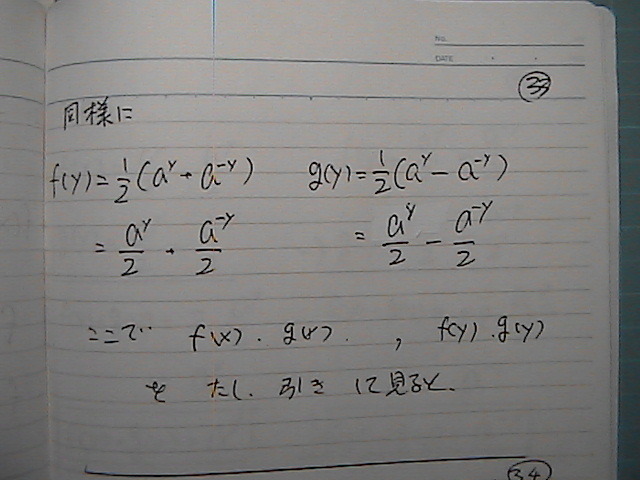 NO.
DATE
㉝
同様に
f(y)=1/2(a^y+a^-y) g(y)=1/2(a^y-a^-y)
=a^y/2+a^-y/2 =a^y/2-a^-y/2
ここで f(x).g(x). , f(y).g(y)
を たし.引き して見ると.
㉞